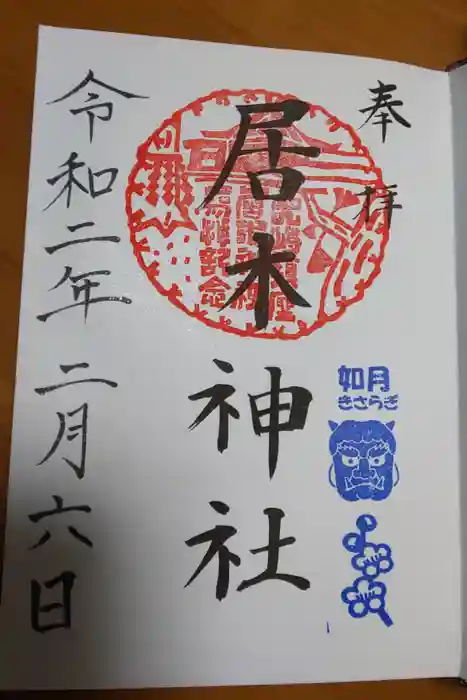 奉拝
如月
きさらぎ
居木神社
令和二年二月六日